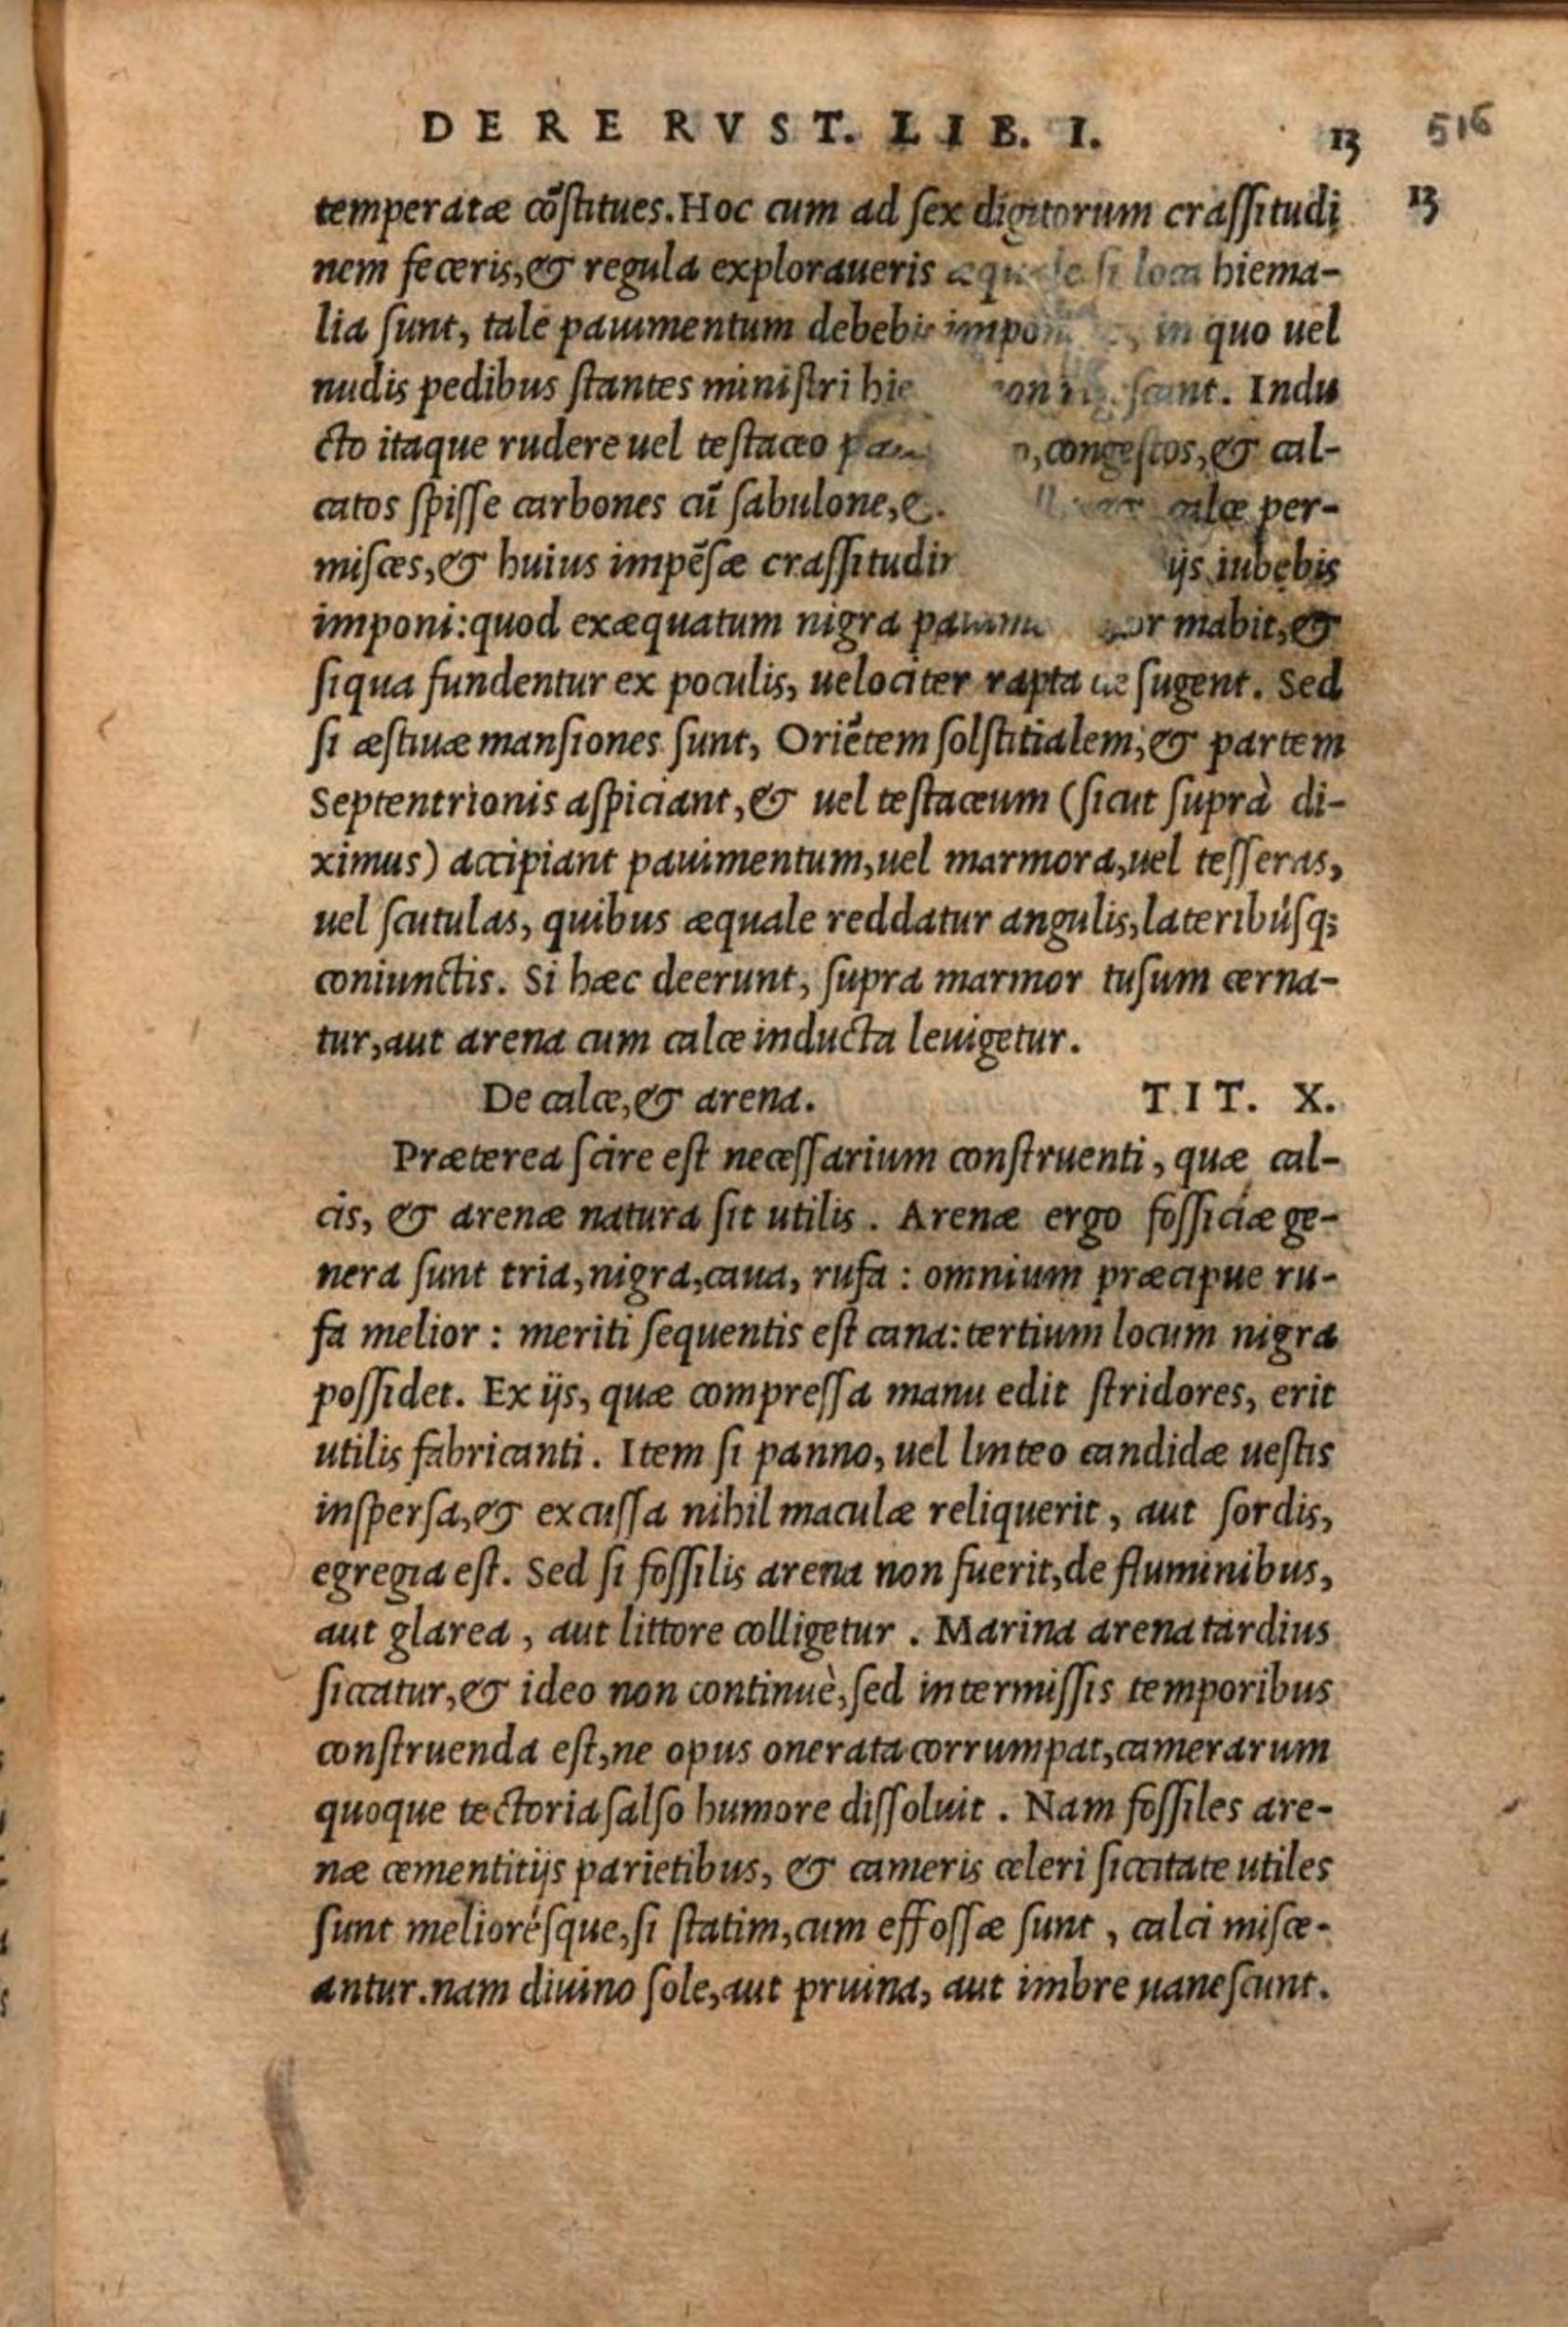 DE RE RVST. LIB. I. 13 516
temperatæ cõstitues. Hoc cum ad sex digitorum crassitudi 13
nem feceris, & regula exploraueris si loca hiema-
lia sunt, tale pauimentum debebis in quo uel
nudis pedibus stantes ministri Indu
cto itaque rudere uel testaceo congestos, & cal-
catos spisse carbones cũ sabulone, calce per-
misces, & huius impẽsæ ijs iubebis
imponi: quod exæquatum nigra &
siqua fundentur ex poculis, uelociter rapta sugent. Sed
si æstiuæ mansiones sunt, Oriẽtem solstitialem, & partem
Septentrionis aspiciant, & uel testaceum (sicut suprà di-
ximus) accipiant pauimentum, uel marmora, uel tesseras,
uel scutulas, quibus æquale reddatur angulis, lateribúsq;
coniunctis. Si hæc deerunt, supra marmor tusum cerna-
tur, aut arena cum calce inducta leuigetur.
De calce, & arena. TIT. X.
Præterea scire est necessarium construenti, quæ cal-
cis, & arenæ natura sit utilis. Arenæ ergo fossiciæ ge-
nera sunt tria, nigra, caua, rufa: omnium præcipue ru-
fa melior: meriti sequentis est cana: tertium locum nigra
possidet. Ex ijs, quæ compressa manu edit stridores, erit
utilis fabricanti. Item si panno, uel linteo candidæ uestis
inspersa, & excussa nihil maculæ reliquerit, aut sordis,
egregia est. Sed si fossilis arena non fuerit, de fluminibus,
aut glarea, aut littore colligetur. Marina arena tardius
siccatur, & ideo non continuè, sed intermissis temporibus
construenda est, ne opus onerata corrumpat, camerarum
quoque tectoria salso humore dissoluit. Nam fossiles are-
næ cementitijs parietibus, & cameris celeri siccitate utiles
sunt meliorésque, si statim, cum effossæ sunt, calci misce-
antur. nam diuino sole, aut pruina, aut imbre uanescunt.